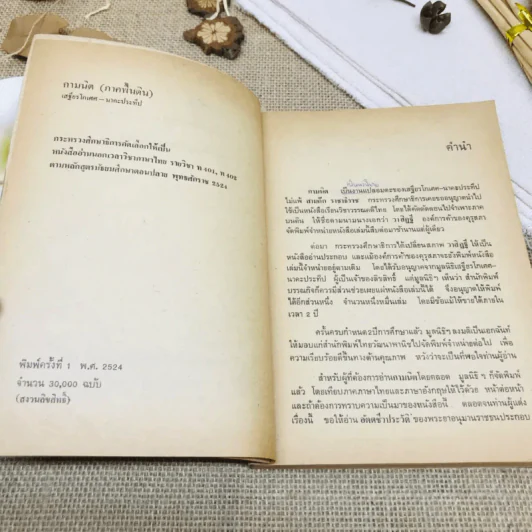 กามนิต (ภาคพื้นดิน)
เสฐียรโกเศศ – นาคะประทีป
กระทรวงศึกษาธิการคัดเลือกให้เป็น
หนังสืออ่านนอกเวลาวิชาภาษาไทย รายวิชา ท 401, ท 402
ตามหลักสูตรมัธยมศึกษาตอนปลาย พุทธศักราช 2524
พิมพ์ครั้งที่ 1 พ.ศ. 2524
จำนวน 30,000 ฉบับ
(สงวนลิขสิทธิ์)
คำนำ
กามนิต เป็นงานแปลของเสฐียรโกเศศ–นาคะประทีป
ไม่แพ้ กระทรวงศึกษาธิการเคยขออนุญาตนำไป
ใช้เป็นหนังสือเรียนวิชาวรรณคดีไทย โดยได้คัดตัดตอนไปจำเพาะภาค
บนดิน ให้ชื่อตามนามนางเอกว่า วาสิฏฐี องค์การค้าของคุรุสภา
จัดพิมพ์จำหน่ายหนังสือเล่มนี้สืบต่อมาช้านานแต่ผู้เดียว
ต่อมา กระทรวงศึกษาธิการได้เปลี่ยนสภาพ วาสิฏฐี ให้เป็น
หนังสืออ่านประกอบ และแม้องค์การค้าของคุรุสภาจะยังพิมพ์หนังสือ
เล่มนี้จำหน่ายอยู่ตามเดิม โดยได้รับอนุญาตจากมูลนิธิเสฐียรโกเศศ–
นาคะประทีป ผู้เป็นเจ้าของลิขสิทธิ์ แต่มูลนิธิฯ เห็นว่า สำนักพิมพ์
บรรณกิจก็ควรมีส่วนช่วยเผยแผ่หนังสือเล่มนี้ได้ จึงอนุญาตให้พิมพ์
ได้อีกส่วนหนึ่ง จำนวนหนึ่งหมื่นเล่ม โดยมีข้อแม้ให้ขายได้ภายใน
เวลา ๕ ปี
ครั้นครบกำหนด ปีการศึกษาแล้ว มูลนิธิฯ ลงมติเป็นเอกฉันท์
ให้มอบแก่สำนักพิมพ์ไทยวัฒนาพานิชไปจัดพิมพ์จำหน่ายต่อไป เพื่อ
ความเรียบร้อยดีขึ้นทางด้านคุณภาพ หวังว่าจะเป็นที่พอใจท่านผู้อ่าน
สำหรับผู้ที่ต้องการอ่านกามนิตโดยตลอด มูลนิธิฯ ก็จัดพิมพ์
แล้ว โดยเทียบภาคภาษาไทยและภาษาอังกฤษให้ไว้ด้วย หน้าต่อหน้า
และถ้าต้องการทราบความเป็นมาของหนังสือนี้ ตลอดจนท่านผู้แต่ง
เรื่องนี้ ขอให้อ่าน อัตตชีวประวัติ ของพระยาอนุมานราชธนประกอบ